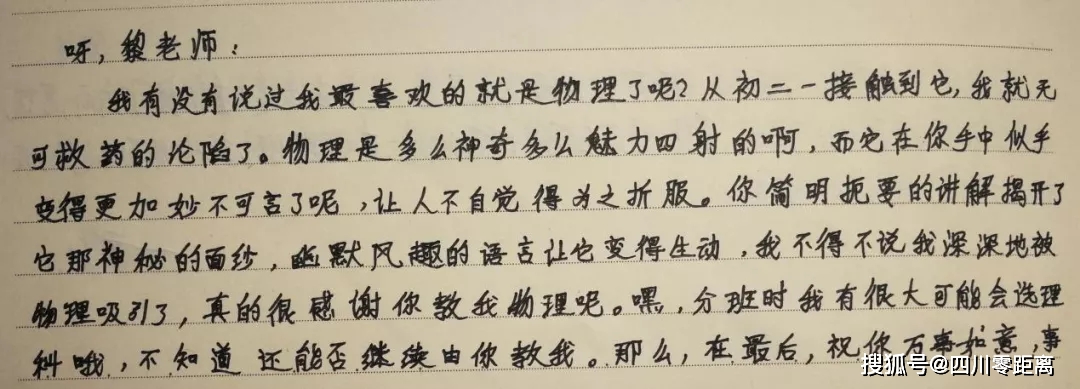 呀，黎老师：
我有没有说过我最喜欢的就是物理了呢？从初二一接触到它，我就无
可救药的沦陷了。物理是多么神奇多么魅力四射的啊，而它在你手中似乎
变得更加妙不可言了呢，让人不自觉得为之折服。你简明扼要的讲解揭开了
它那神秘的面纱，幽默风趣的语言让它变得生动，我不得不说我深深地被
物理吸引了，真的很感谢你教我物理呢。嘿，分班时我有很大可能会选理
科哦，不知道还能否继续由你教我。那么，在最后，祝你万事如意，事
搜狐号@四川零距离